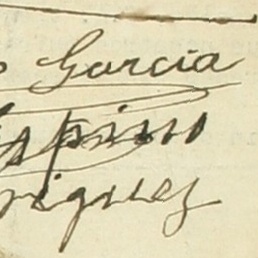 o Garcia
spino
riguez